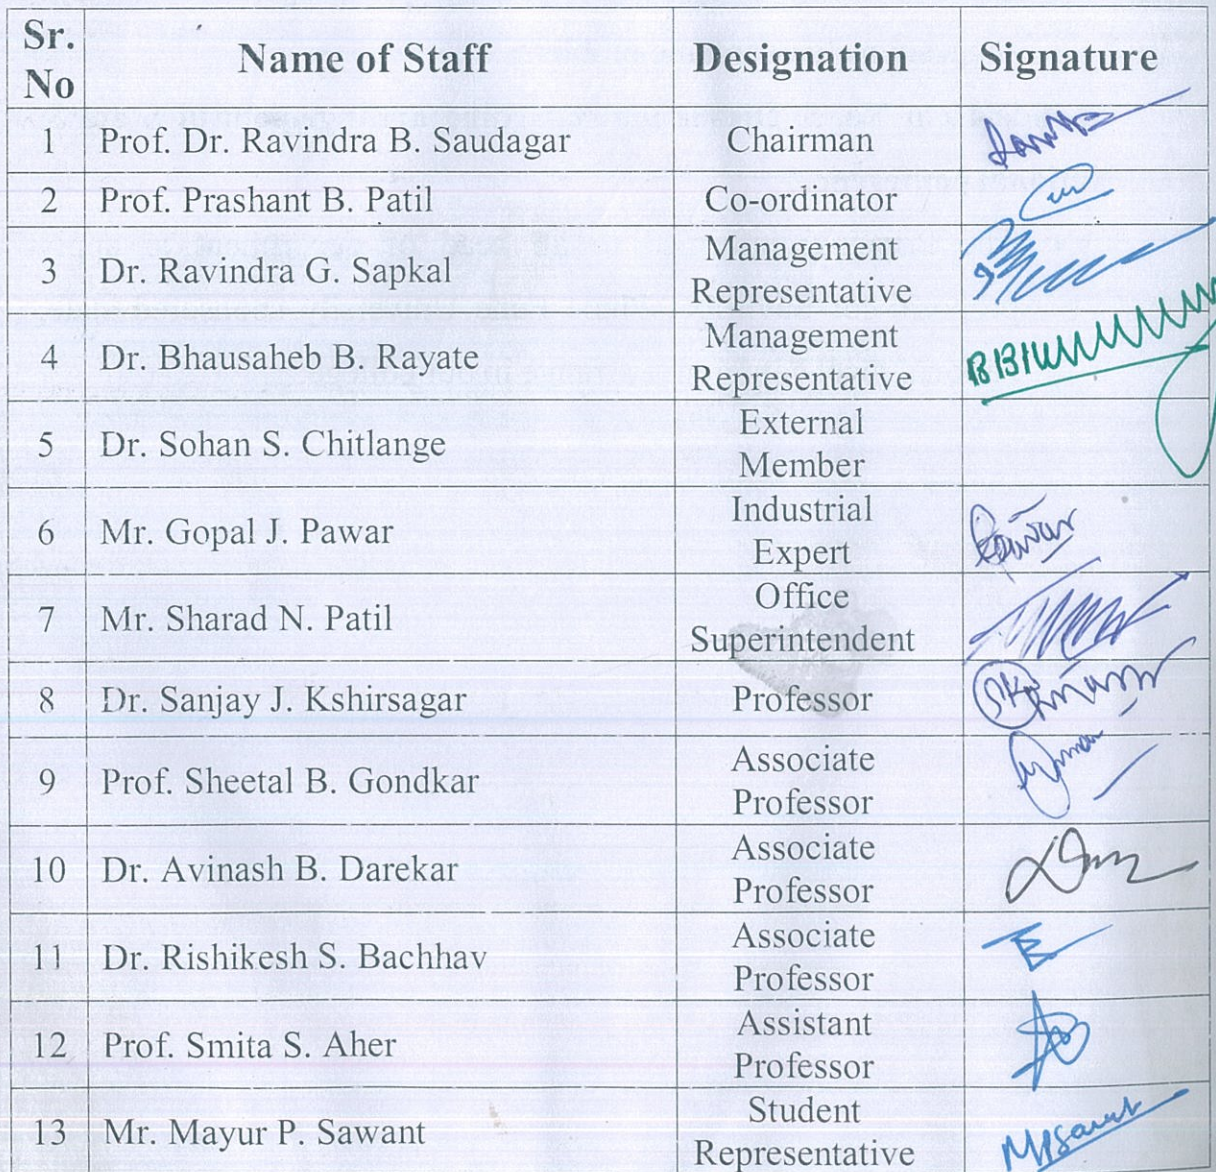 Sr. No Name of Staff Designation Signature
1 Prof. Dr. Ravindra B. Saudagar Chairman
2 Prof. Prashant B. Patil Co-ordinator
3 Dr. Ravindra G. Sapkal Management Representative
4 Dr. Bhausaheb B. Rayate Management Representative
5 Dr. Sohan S. Chitlange External Member
6 Mr. Gopal J. Pawar Industrial Expert Pawar
7 Mr. Sharad N. Patil Office Superintendent
8 Dr. Sanjay J. Kshirsagar Professor
9 Prof. Sheetal B. Gondkar Associate Professor
10 Dr. Avinash B. Darekar Associate Professor
11 Dr. Rishikesh S. Bachhav Associate Professor
12 Prof. Smita S. Aher Assistant Professor
13 Mr. Mayur P. Sawant Student Representative MPSawant